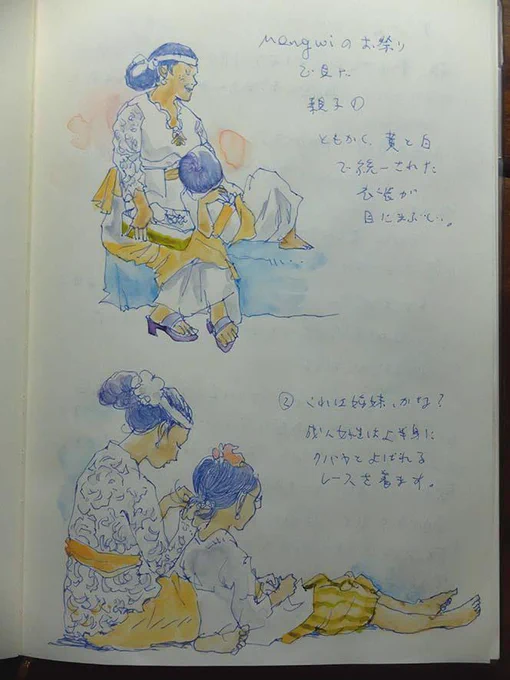 Mengwiのお祭り
で見た
親子の
ともかく、黄と白
で統一された
衣装が
目にまぶしい。
② これは姉妹、かな?
成人女性は上半身に
クバヤとよばれる
レースを着ます。